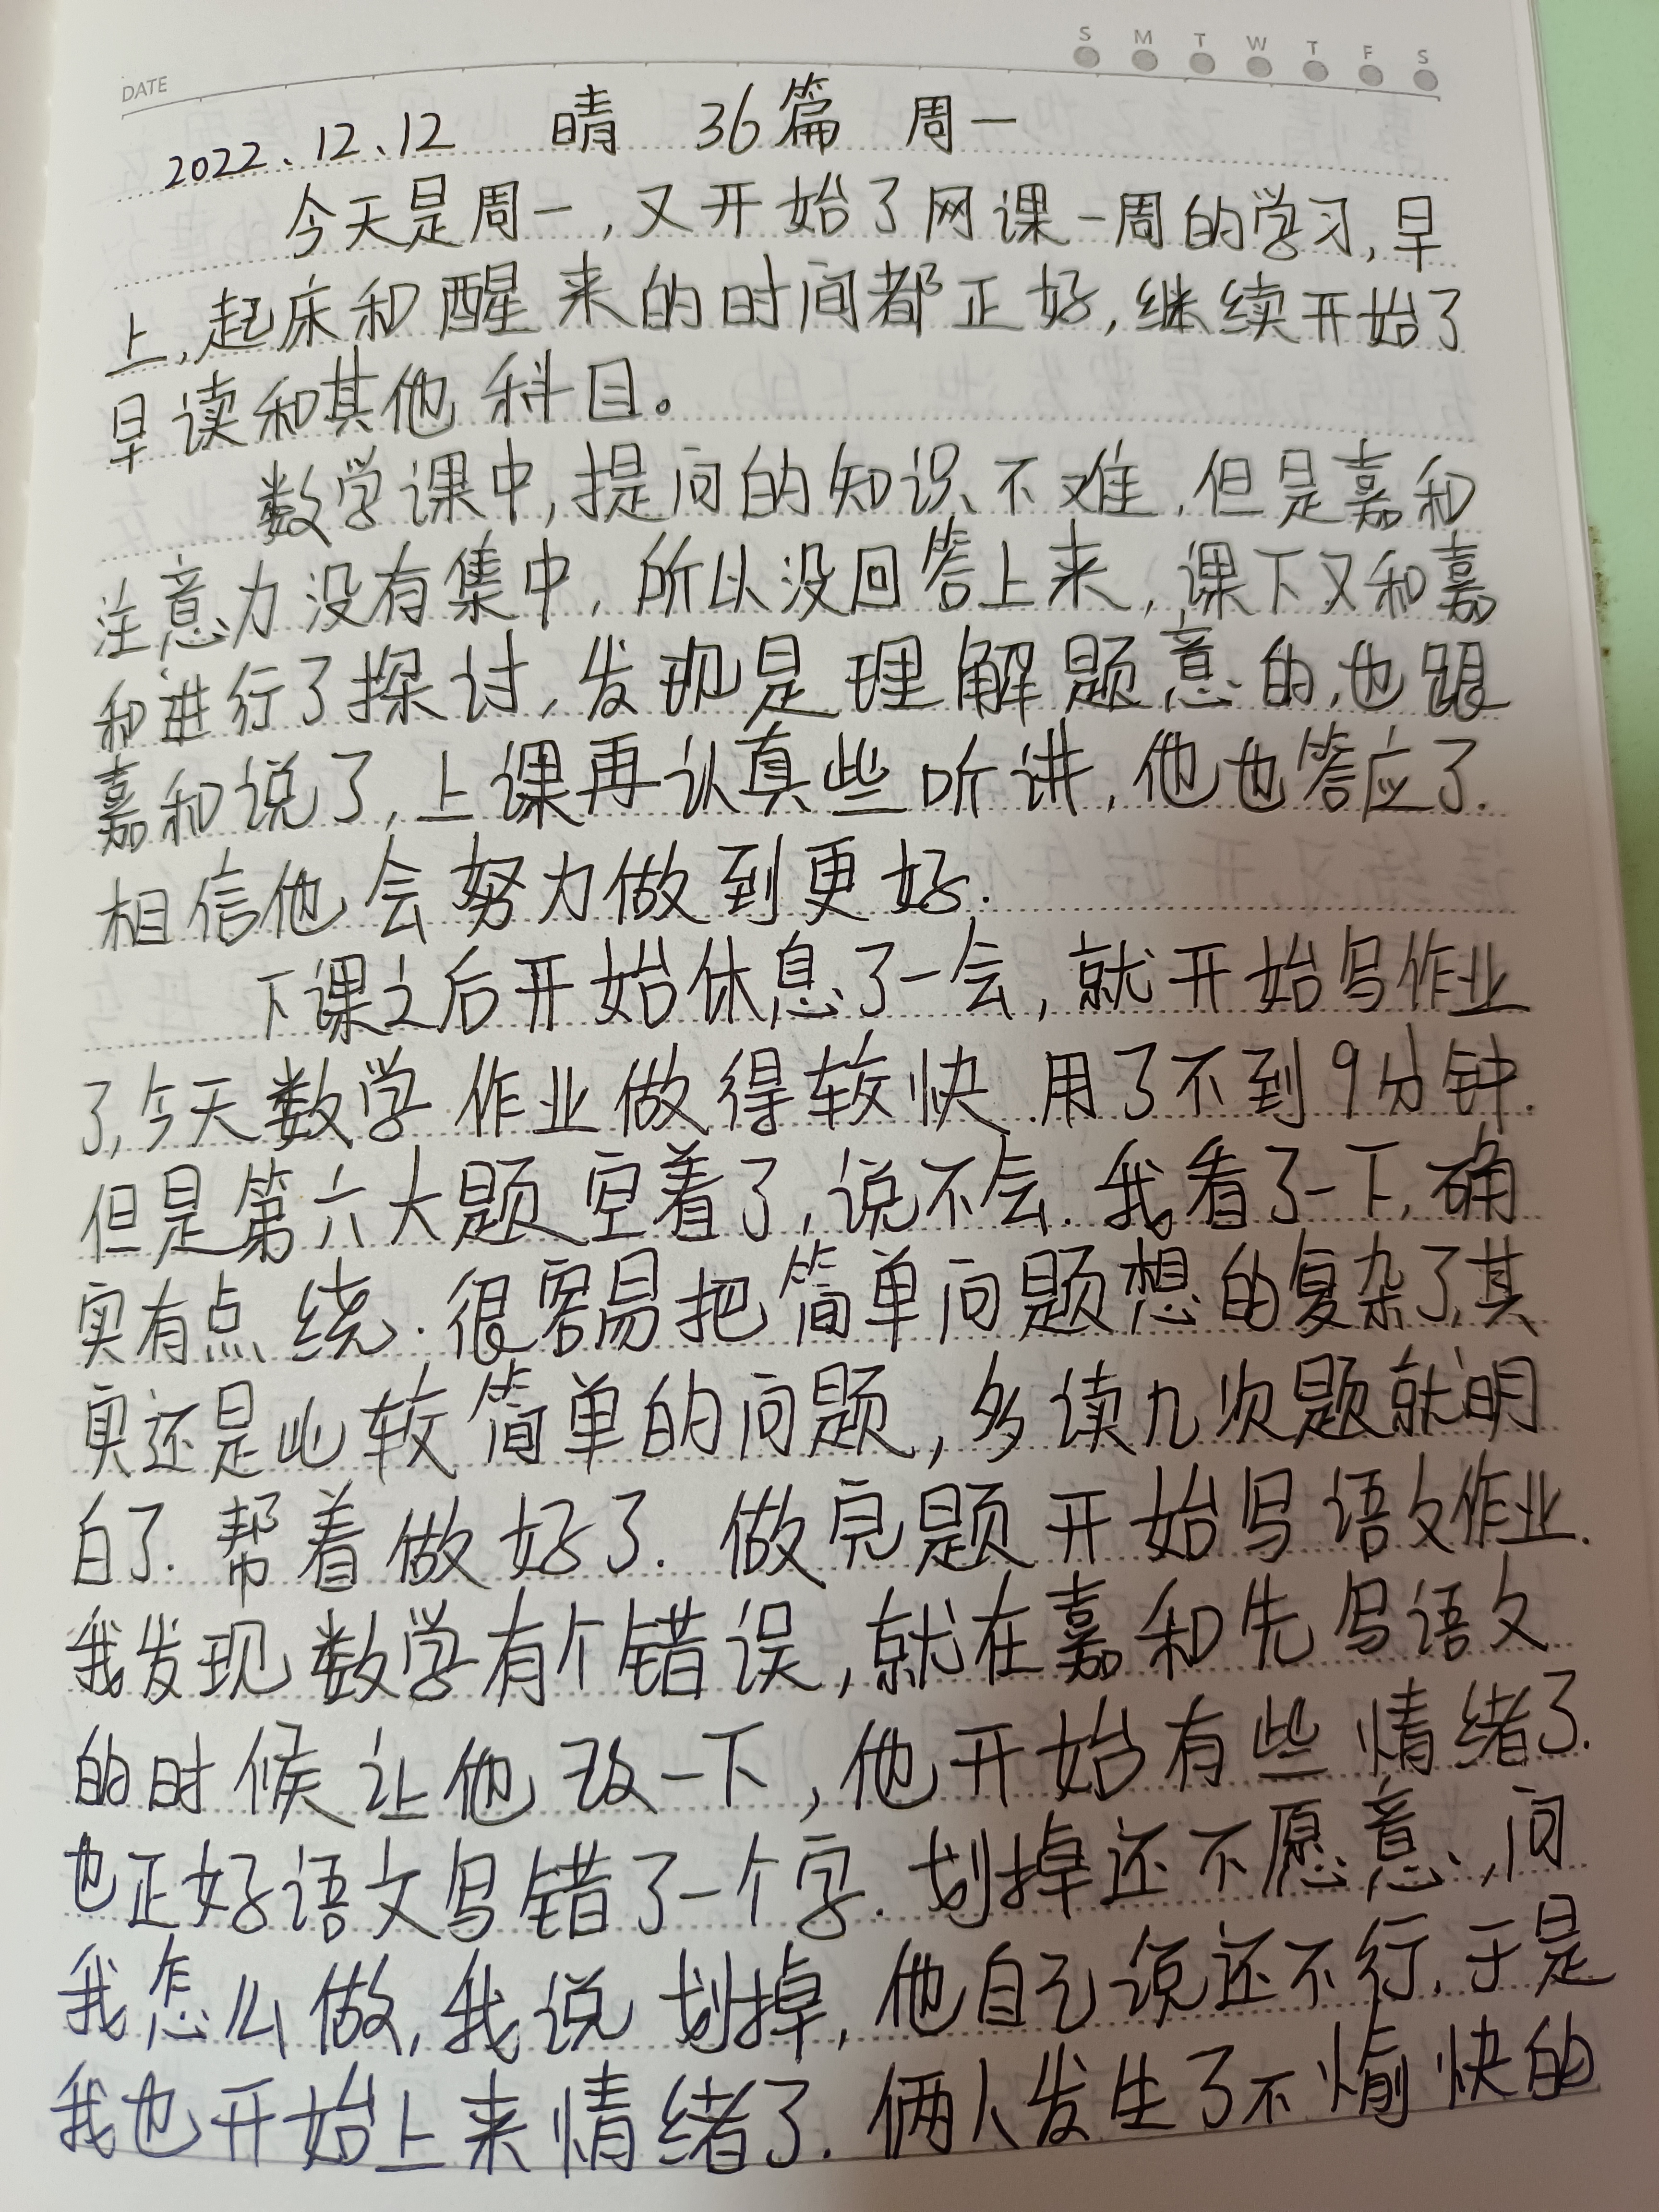 DATE
S M T W T F S
2022、12、12 晴 36篇 周一
今天是周一,又开始了网课一周的学习,早
上,起床和醒来的时间都正好,继续开始了
早读和其他科目。
数学课中,提问的知识不难,但是嘉和
注意力没有集中,所以没回答上来,课下又和嘉
和进行了探讨,发现是理解题意的,也跟
嘉和说了,上课再认真些听讲,他也答应了.
相信他会努力做到更好.
下课之后开始休息了一会,就开始写作业
了,今天数学作业做得较快.用了不到9分钟.
但是第六大题空着了,说不会.我看了一下,确
实有点绕.很容易把简单问题想的复杂了,其
实还是比较简单的问题,多读几次题就明
白了.帮着做好了.做完题开始写语文作业.
我发现数学有个错误,就在嘉和先写语文
的时候让他改一下,他开始有些情绪了.
也正好语文写错了一个字.划掉还不愿意,问
我怎么做,我说划掉,他自己说还不行,于是
我也开始上来情绪了.俩人发生了不愉快的